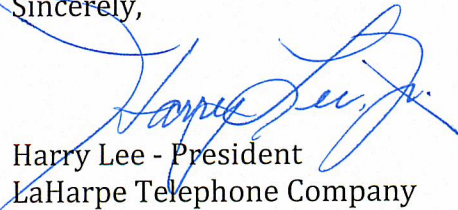 Sincerely,
Harry Lee, Jr.
Harry Lee - President
LaHarpe Telephone Company